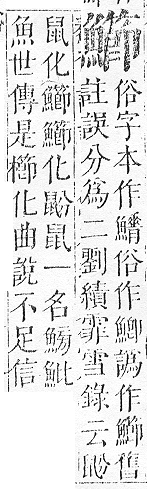 䲙
俗字本作鰿俗作鯽譌作䲙舊
註誤分爲二劉績霏雪錄云鼢
鼠化䲙䲙化鼢鼠一名魮
魚世傳是櫛化曲說不足信